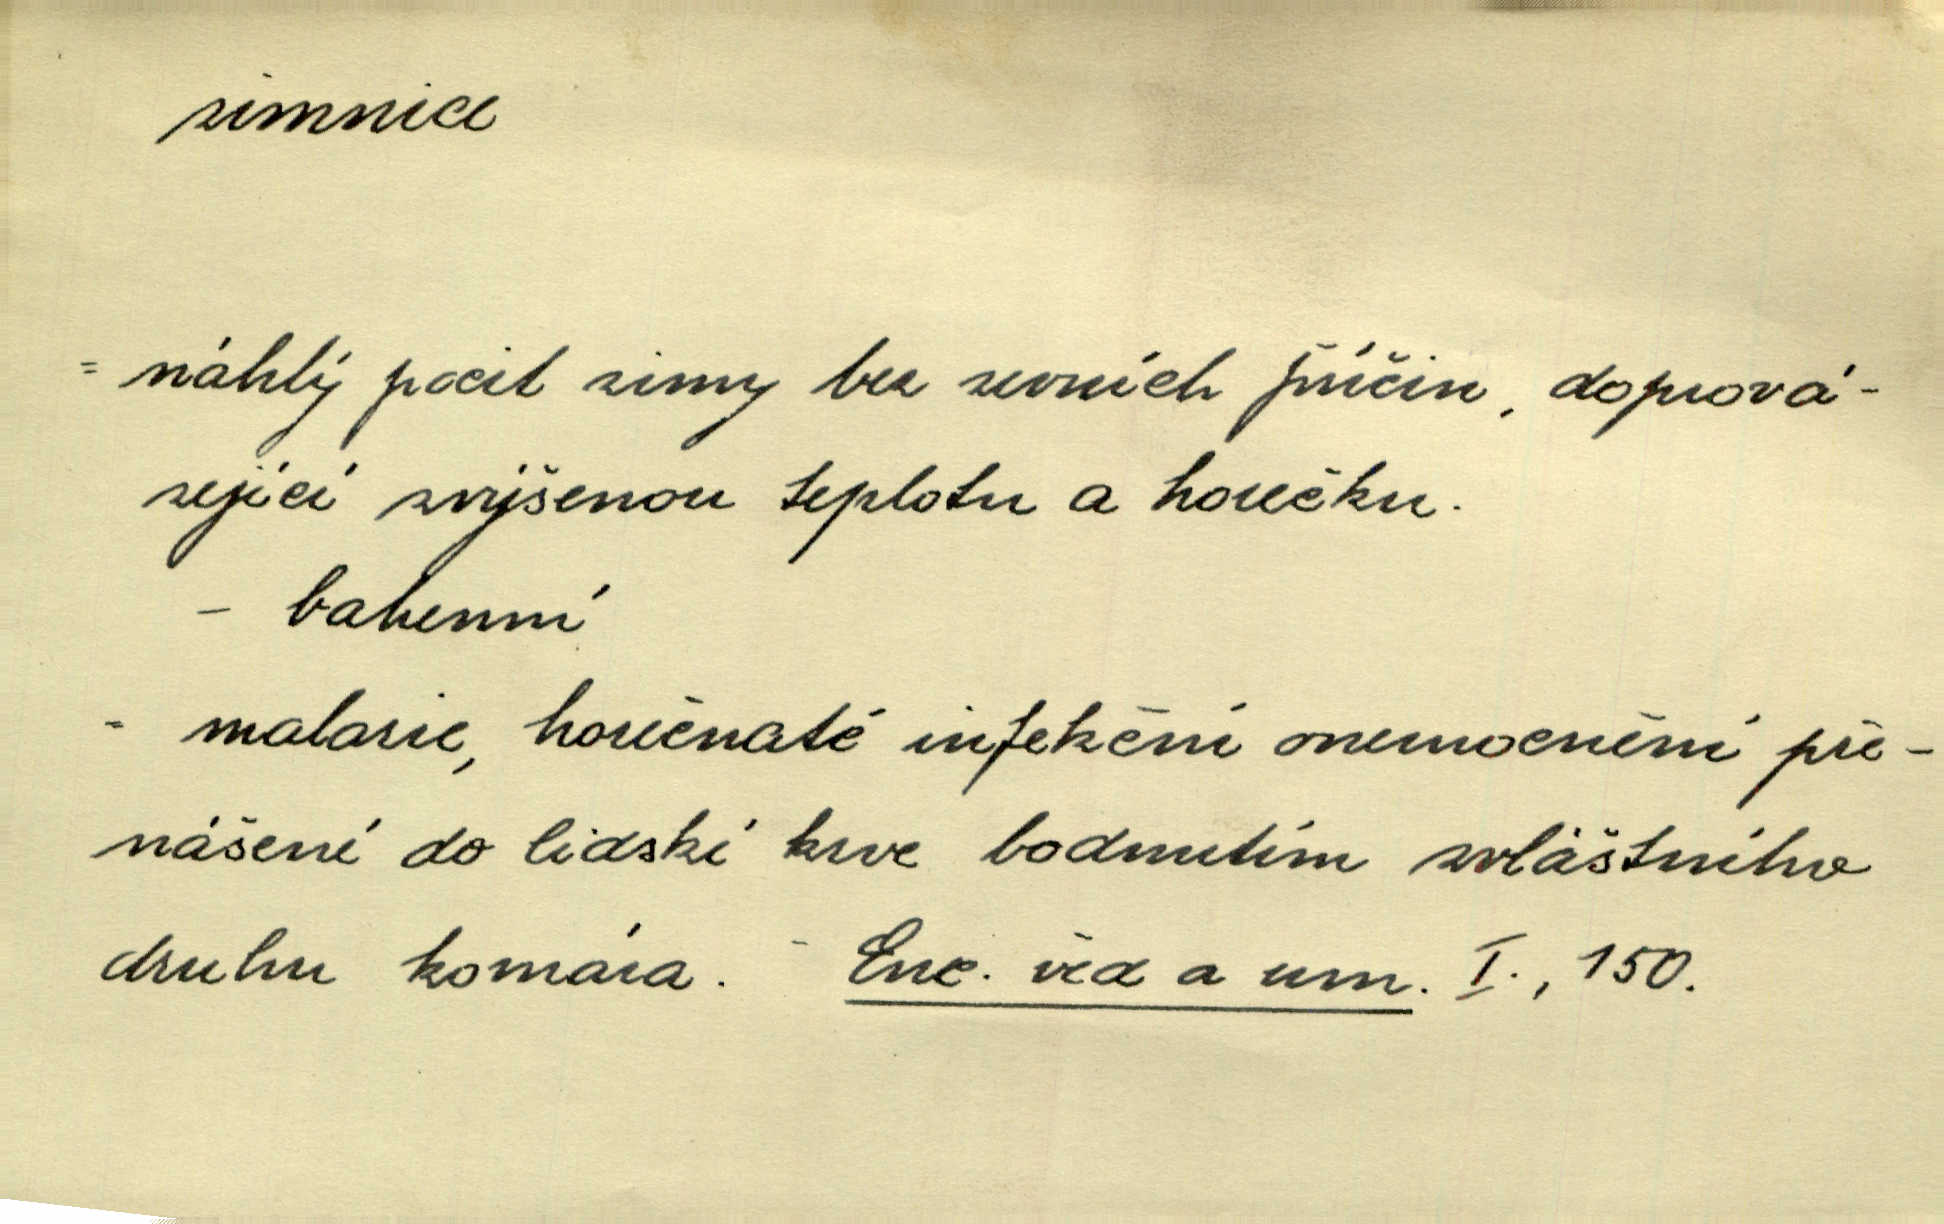 zimnice
= náhlý pocit zimy bez zevních příčin, doprová-
zející zvýšenou teplotu a horečku.
- bahenní
= malarie, horečnaté infekční onemocnění pře-
nášení do lidské krve bodnutím zvláštního
druhu komára. - Enc. věd a um. I., 150.